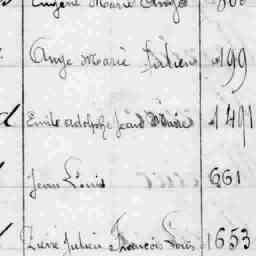 Eugène Marie Ange
Ange Marie Julien 199
Emile Adolphe Jean Marie 1491
Jean Louis 661
Pierre Julien François Louis 1653